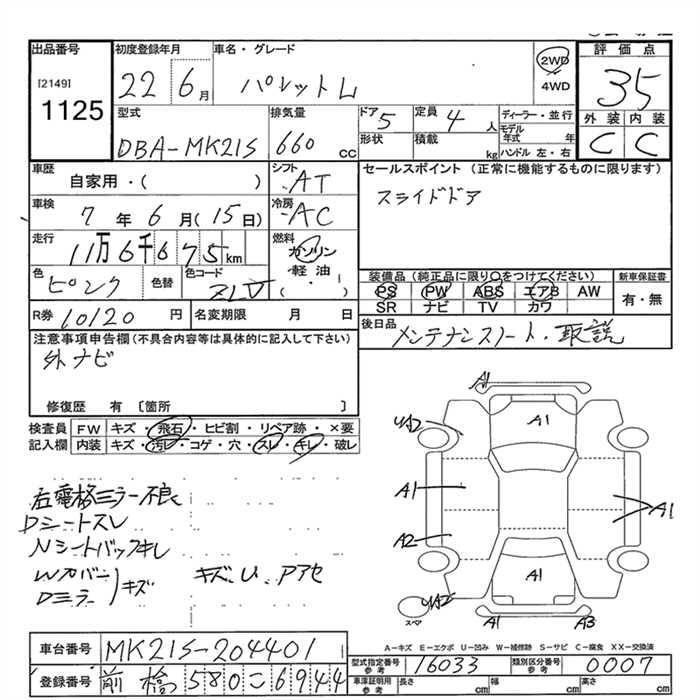 出品番号 初度登録年月 車名・グレード 2WD 4WD 評価点
[2149] 1125
22 6月 パレット L 35
型式 排気量 ドア 5 定員 4人 ディーラー・並行 外装 内装
DBA-MK21S 660cc 形状 積載 kg モデル年式 年 ハンドル 左・右 C C
車歴 自家用・( ) シフト AT セールスポイント (正常に機能するものに限ります)
スライドドア
車検 7年 6月(15日) 冷房 AC
走行 11万6千675km 燃料 ガソリン 軽油 ( ・ )
色 ピンク 色替 色コード ZLV
装備品(純正品に限り○をつけてください) 新車保証書
PS PW ABS エアB AW 有・無
SR ナビ TV カワ
R券 10120円 名変期限 月 日
後日品 メンテナンスノート・取説
注意事項申告欄(不具合内容等は具体的に記入して下さい)
外ナビ
修復歴 有 [箇所 ]
検査員記入欄 FW キズ・飛石・ヒビ割・リペア跡・×要
内装 キズ・汚レ・コゲ・穴・スレ・キレ・破レ
右電格ミラー不良
Dシートスレ
Nシートバックキレ
Wカバー
Dミラー キズ キズ、U、Pアセ
A1
A1
A2
A1
A1
A2
A1
スペア
A1 A3
A-キズ E-エクボ U-凹み W-補修跡 S-サビ C-腐食 XX-交換済
車台番号 MK21S-204401
型式指定番号 参考 16033 類別区分番号 参考 0007
登録番号 前橋 580こ6944
車庫証明用 参考 長さ cm 幅 cm 高さ cm